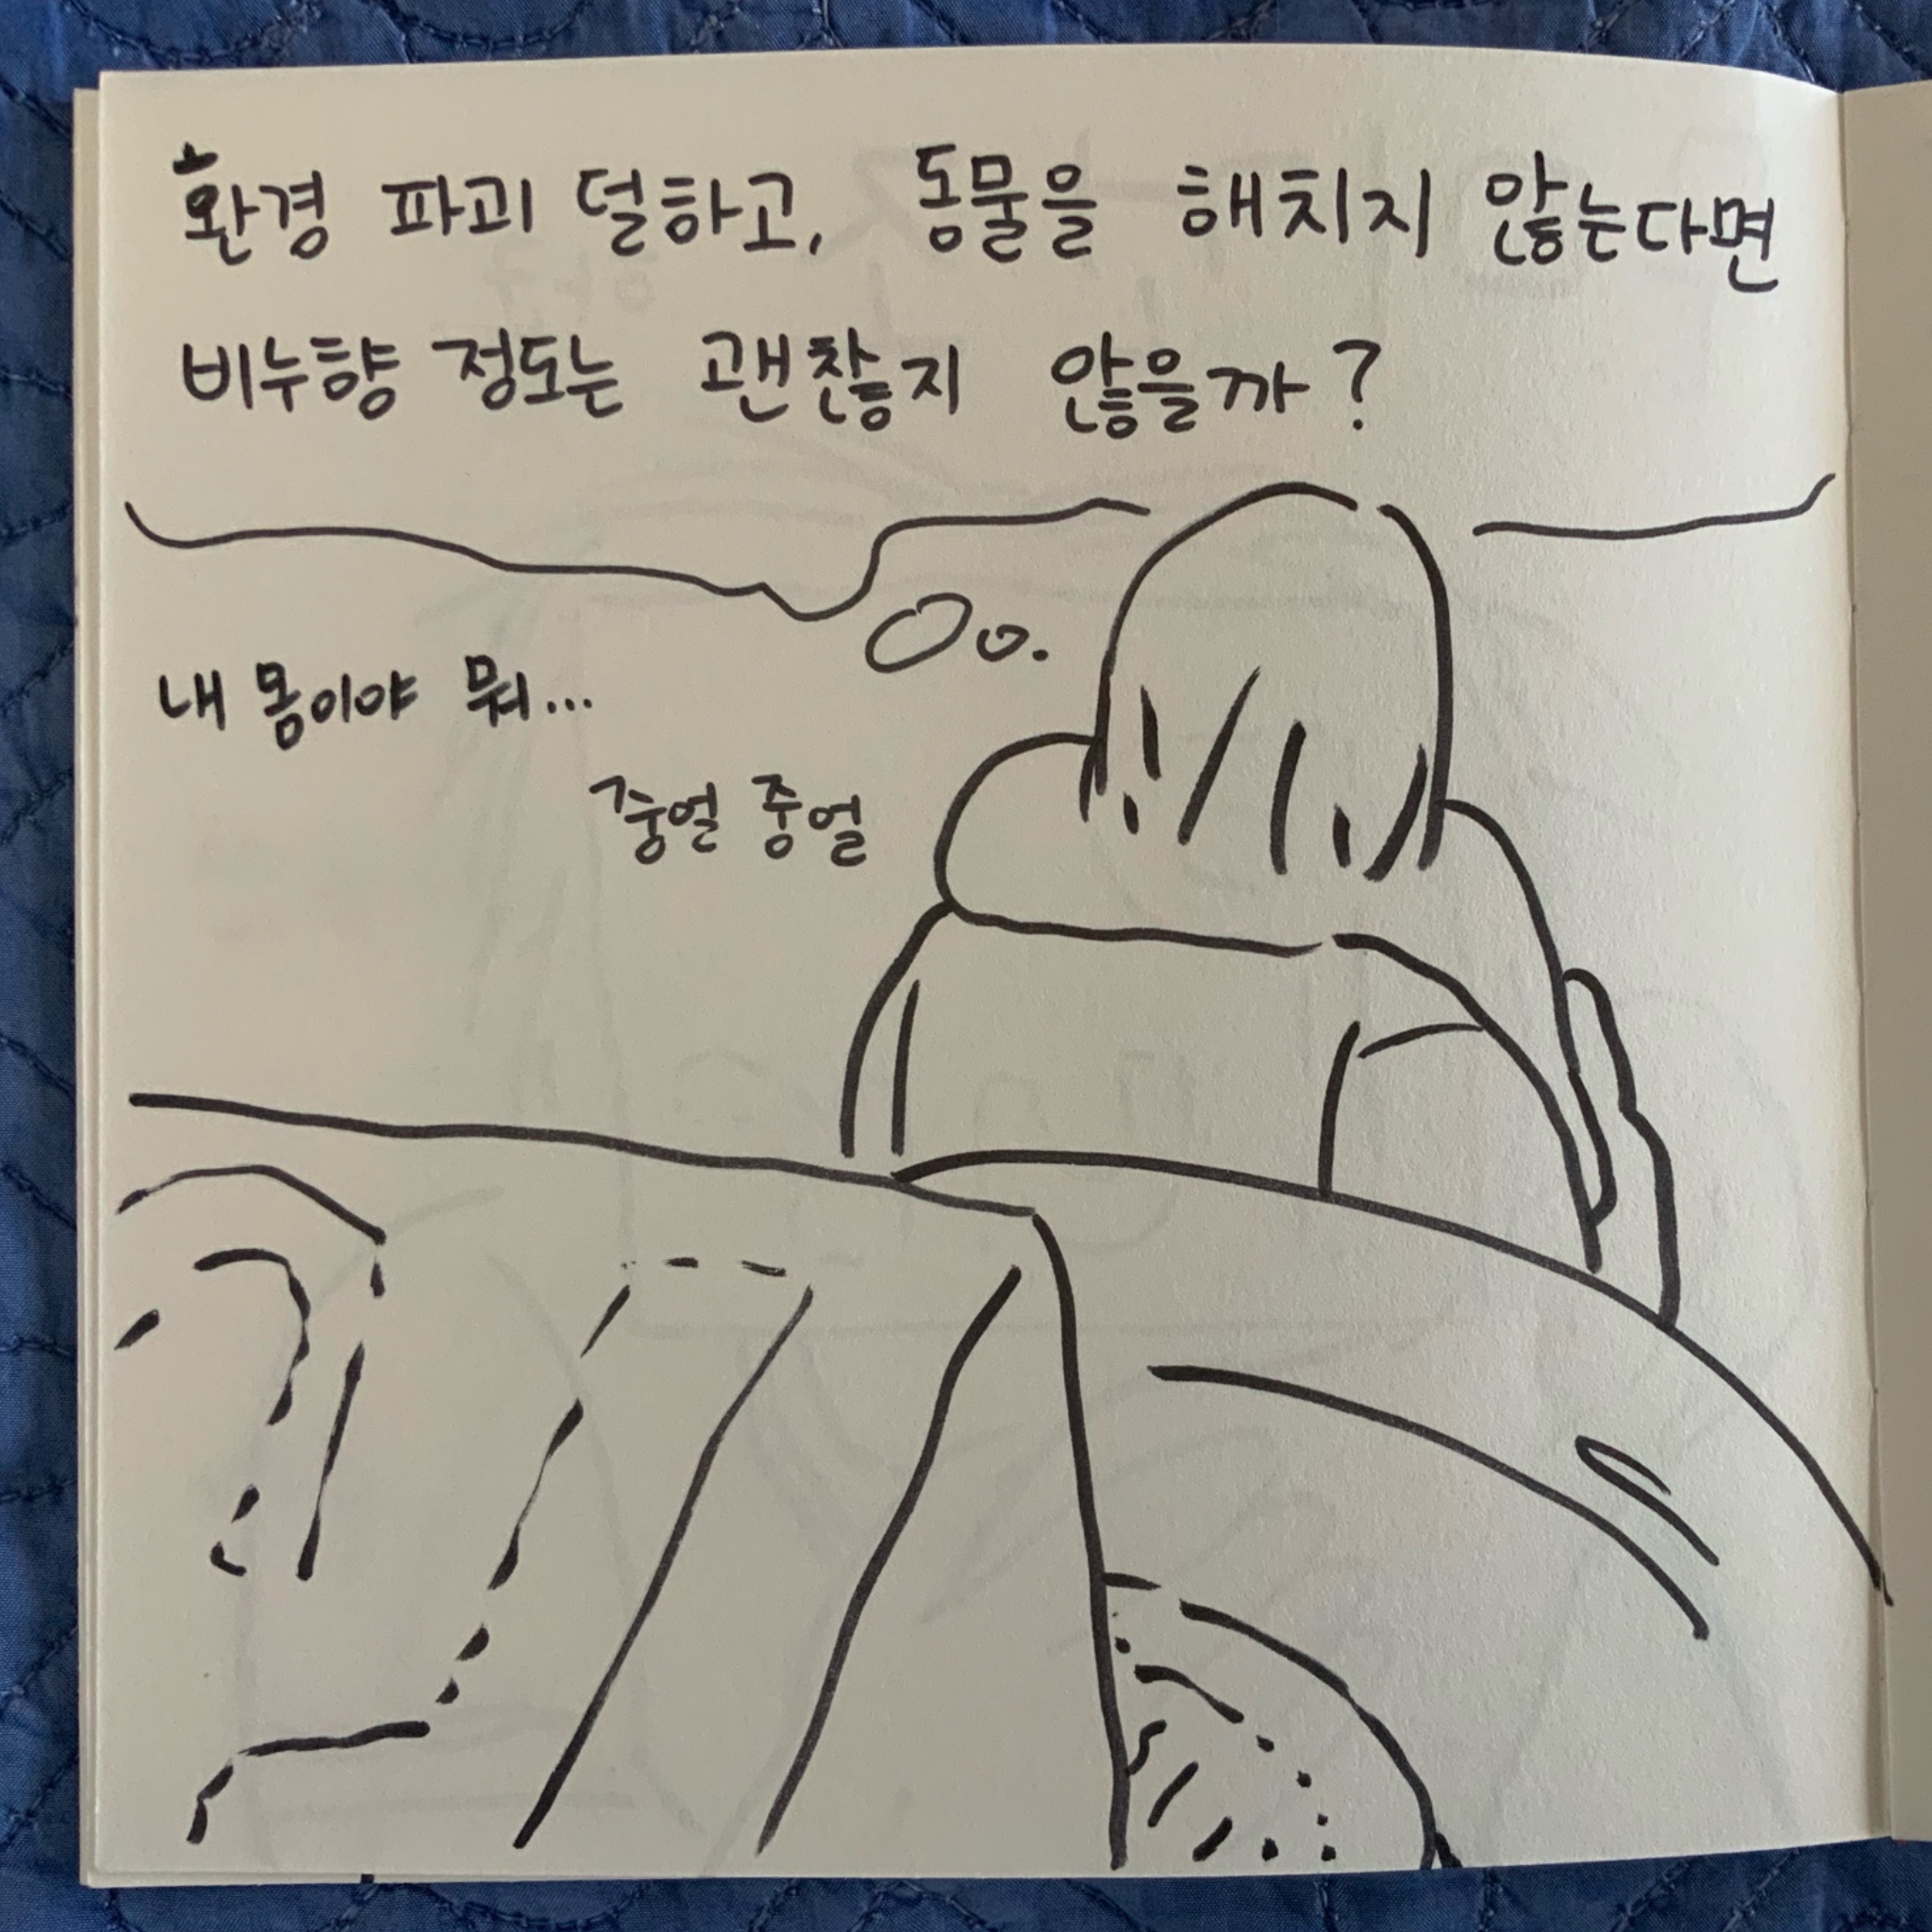 환경 파괴 덜하고, 동물을 해치지 않는다면
비누향 정도는 괜찮지 않을까?
내 몸이야 뭐...
중얼 중얼